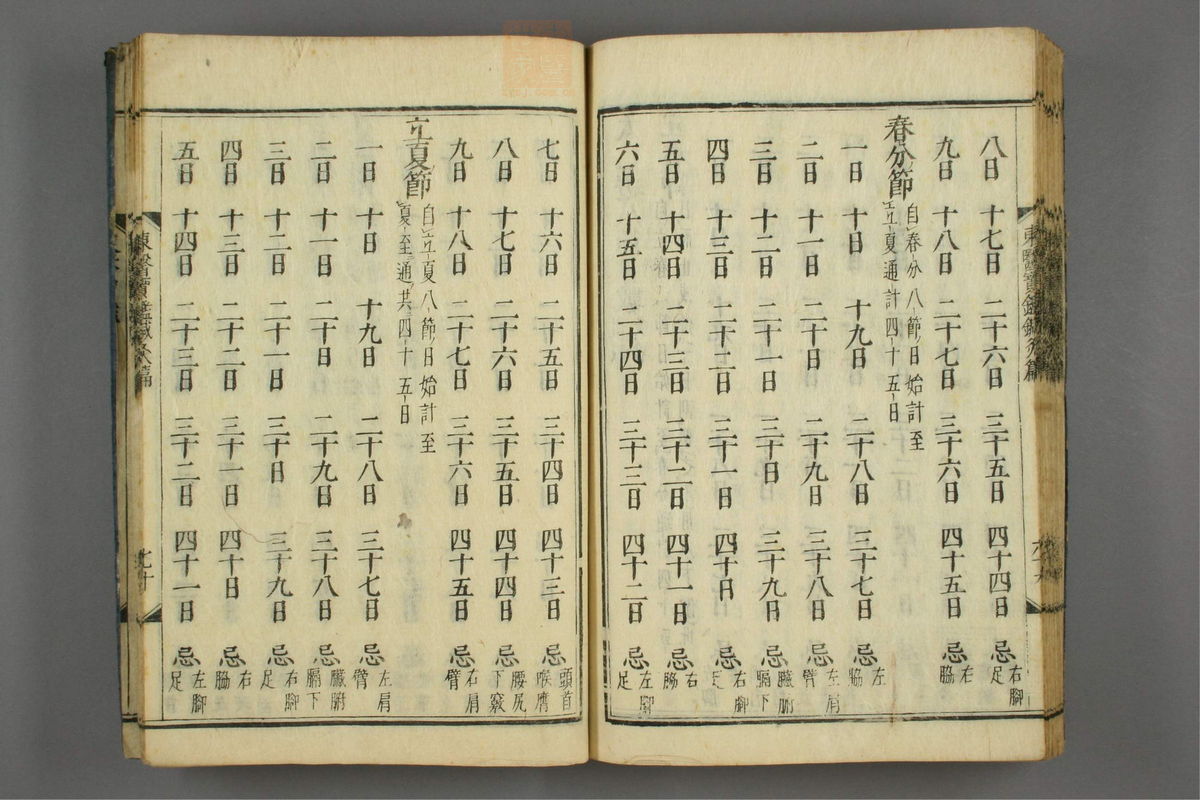 東醫寶鑑鍼灸篇
八日 十七日 二十六日 三十五日 四十四日 忌右腳足
九日 十八日 二十七日 三十六日 四十五日 忌右脇
春分節 自春分八節日始計至立夏通計四十五日
一日 十日 十九日 二十八日 三十七日 忌左脇
二日 十一日 二十日 二十九日 三十八日 忌左肩臂
三日 十二日 二十一日 三十日 三十九日 忌臟腑膈下
四日 十三日 二十二日 三十一日 四十日 忌右腳足
五日 十四日 二十三日 三十二日 四十一日 忌右脇
六日 十五日 二十四日 三十三日 四十二日 忌左腳足
七日 十六日 二十五日 三十四日 四十三日 忌頭首喉膺
八日 十七日 二十六日 三十五日 四十四日 忌腰尻下竅
九日 十八日 二十七日 三十六日 四十五日 忌右肩臂
立夏節 自立夏八節日始計至夏至通共四十五日
一日 十日 十九日 二十八日 三十七日 忌左肩臂
二日 十一日 二十日 二十九日 三十八日 忌臟腑膈下
三日 十二日 二十一日 三十日 三十九日 忌右腳足
四日 十三日 二十二日 三十一日 四十日 忌右脇
五日 十四日 二十三日 三十二日 四十一日 忌左腳足
東醫寶鑑鍼灸篇